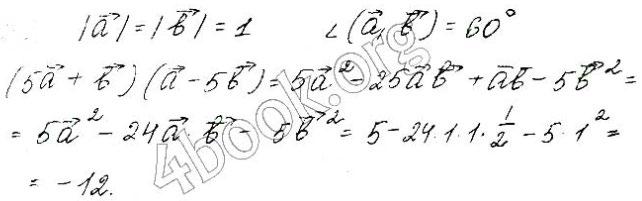 |a⃗| = |b⃗| = 1 ∠(a⃗, b⃗) = 60°
(5a⃗ + b⃗)(a⃗ - 5b⃗) = 5a⃗² - 25a⃗b⃗ + a⃗b⃗ - 5b⃗² =
= 5a⃗² - 24a⃗ b⃗ - 5b⃗² = 5 - 24·1·1·1/2 - 5·1² =
= -12.
4book.org